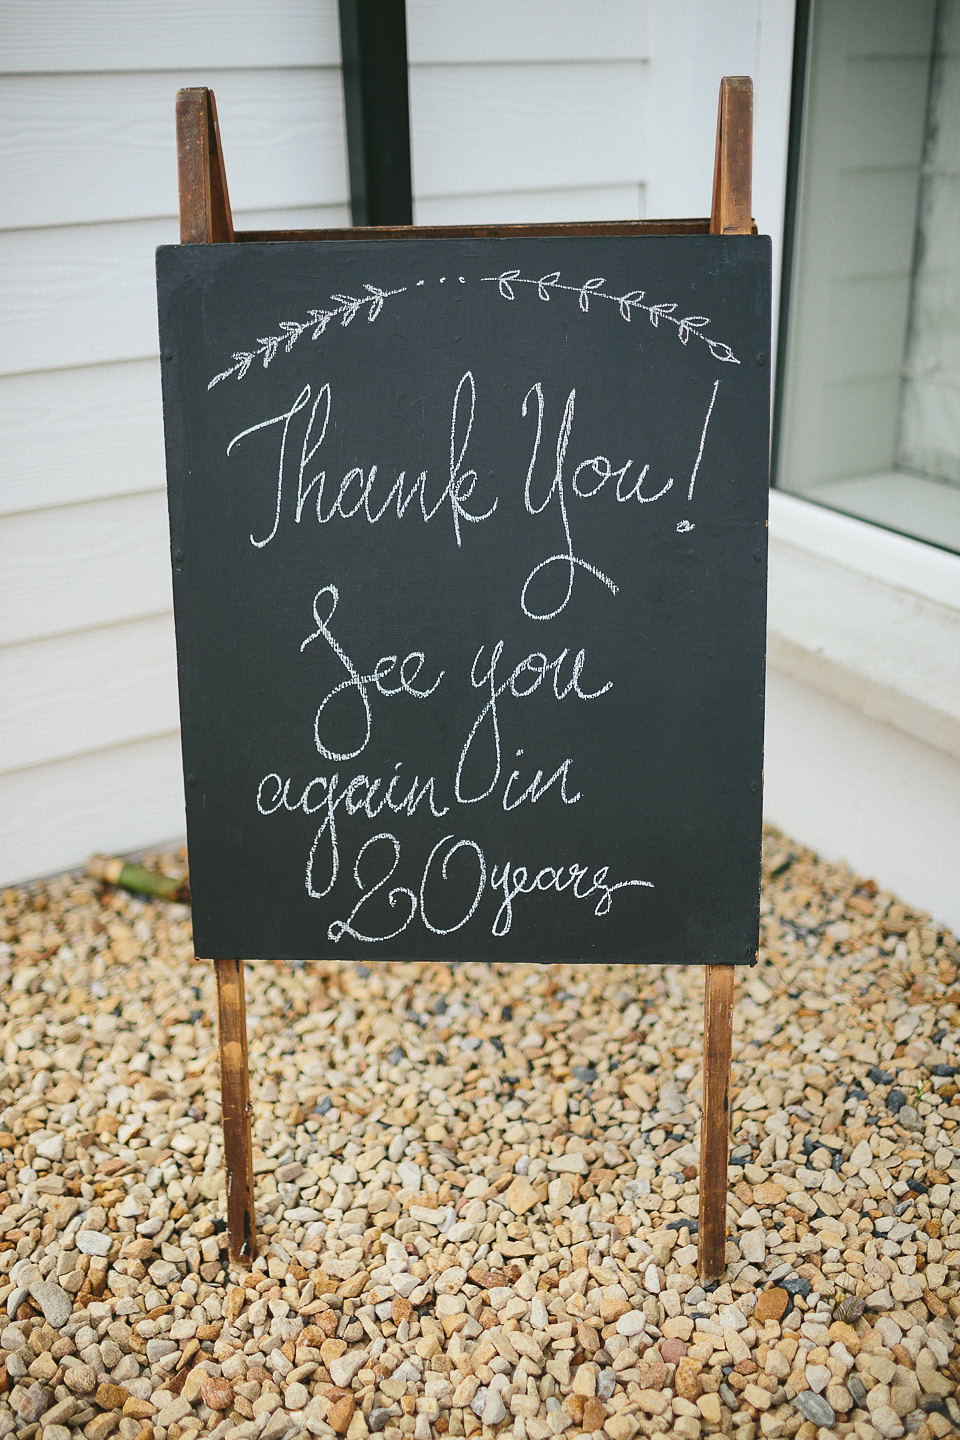 Thank You!
See you
again in
20 years